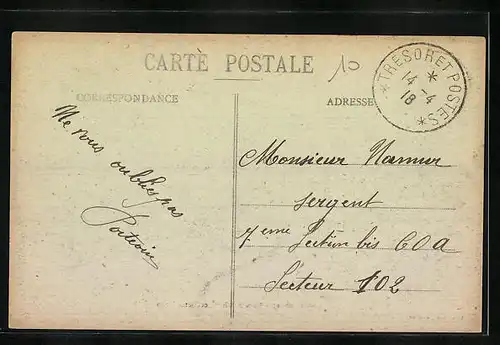 CARTE POSTALE
10
CORRESPONDANCE
ADRESSE
*TRESOR ET POSTES*
*
14 -4
18
*
Ne vous oubliés pas
Monsieur Namur
Sergent
7eme Section bis COA
Secteur 102